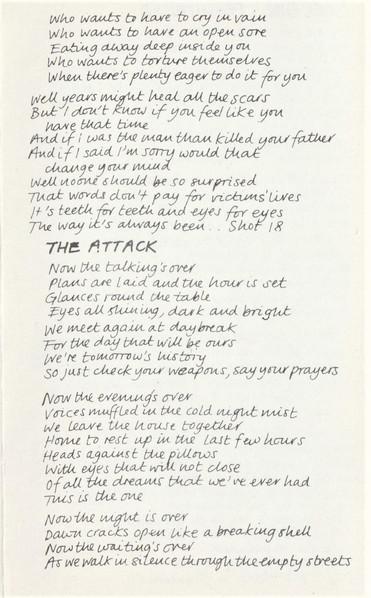 Who wants to have to cry in vain
Who wants to have an open sore
Eating away deep inside you
Who wants to torture themselves
When there's plenty eager to do it for you
Well years might heal all the scars
But I don't know if you feel like you
have that time
And if I was the man than killed your father
And if I said I'm sorry would that
change your mind
Well noone should be so surprised
That words don't pay for victims' lives
It's teeth for teeth and eyes for eyes
The way it's always been . . Shot 18
THE ATTACK
Now the talking's over
Plans are laid and the hour is set
Glances round the table
Eyes all shining, dark and bright
We meet again at daybreak
For the day that will be ours
We're tomorrow's history
So just check your weapons, say your prayers
Now the evening's over
Voices muffled in the cold night mist
We leave the house together
Home to rest up in the last few hours
Heads against the pillows
With eyes that will not close
Of all the dreams that we've ever had
This is the one
Now the night is over
Dawn cracks open like a breaking shell
Now the waiting's over
As we walk in silence through the empty streets